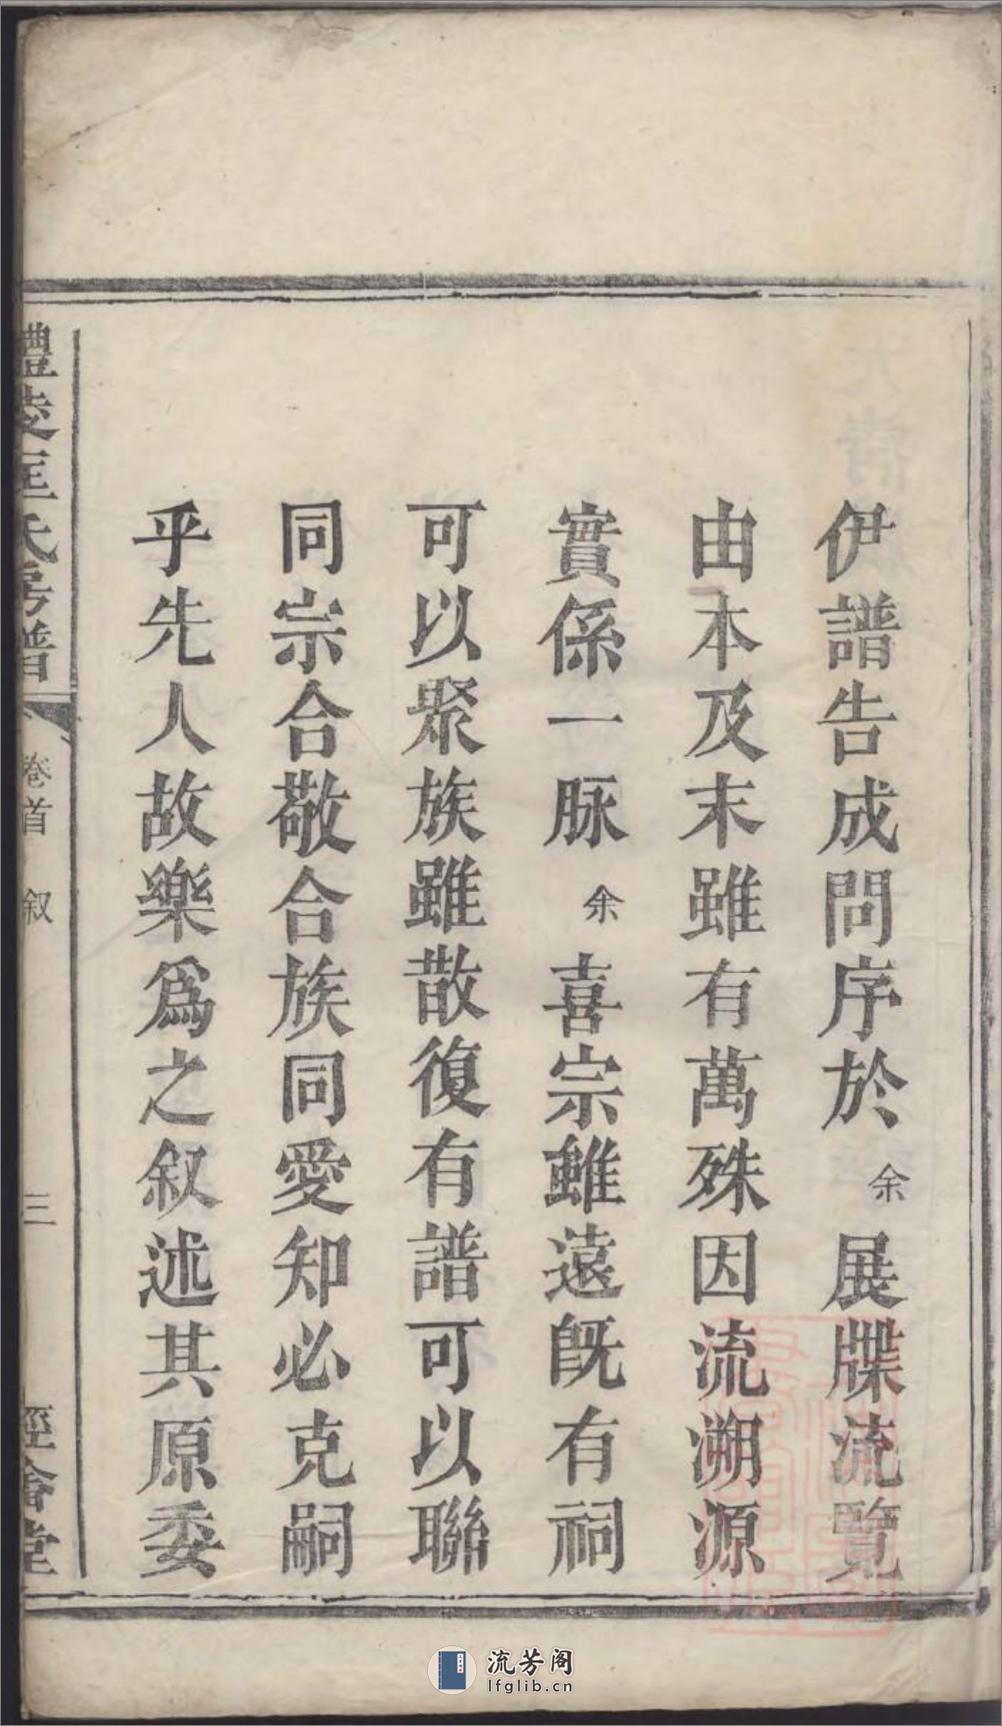 伊譜告成問序於余展牒流覽
由本及末雖有萬殊因流溯源
實係一脉余喜宗雖遠旣有祠
可以聚族雖散復有譜可以聯
同宗合敬合族同愛知必克嗣
乎先人故樂爲之叙述其原委
醴陵匡氏房譜
卷首 叙
三
流芳阁
lfglib.cn